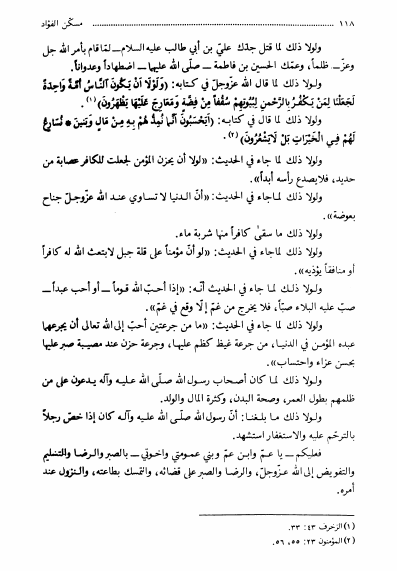 ١١٨ ........................................ مسكّن الفؤاد
ولولا ذلك لما قتل جدّك عليّ بن أبي طالب عليه السلام ــ لمّا قام بأمر الله جل
وعزّ ــ ظلماً، وعمّك الحسين بن فاطمة ــ صلّى الله عليها ــ اضطهاداً وعدواناً.
ولولا ذلك لما قال الله عزّوجلّ في كتابه: (وَلَوْلَا أَن يَكُونَ النَّاسُ أُمَّةً وَاحِدَةً
لَجَعَلْنَا لِمَن يَكْفُرُ بِالرَّحْمنِ لِبُيُوتِهِمْ سُقُفاً مِنْ فِضَّةٍ وَمَعَارِجَ عَلَيْهَا يَظْهَرُونَ)(١).
ولولا ذلك لما قال في كتابه: (أَيَحْسَبُونَ أَنَّمَا نُمِدُّهُم بِهِ مِنْ مَالٍ وَبَنِينَ * نُسَارِعُ
لَهُمْ فِي الْخَيْرَاتِ بَلْ لَايَشْعُرُونَ)(٢).
ولولا ذلك لما جاء في الحديث: «لولا أن يحزن المؤمن لجعلت للكافر عصابة من
حديد، فلايصدع رأسه أبداً».
ولولا ذلك لماجاء في الحديث: «أنّ الدنيا لا تساوي عند الله عزّوجلّ جناح
بعوضة».
ولولا ذلك ما سقى كافراً منها شربة ماء.
ولولا ذلك لماجاء في الحديث: «لو أنّ مؤمناً على قلة جبل لابتعث الله له كافراً
أو منافقاً يؤذيه».
ولولا ذلك لما جاء في الحديث أنّه: «إذا أحبّ الله قوماً ــ أو أحب عبداً ــ
صبّ عليه البلاء صبّاً، فلا يخرج من غمّ إلّا وقع في غمّ».
ولولا ذلك لما جاء في الحديث: «ما من جرعتين أحبّ إلى الله تعالى أن يجرعهما
عبده المؤمن في الدنيا، من جرعة غيظ كظم عليها، وجرعة حزن عند مصيبة صبر عليها
بحسن عزاء واحتساب».
ولولا ذلك لما كان أصحاب رسول الله صلّى الله عليه وآله يدعون على من
ظلمهم بطول العمر، وصحة البدن، وكثرة المال والولد.
ولولا ذلك ما بلغنا: أنّ رسول الله صلّى الله عليه وآله كان إذا خصّ رجلاً
بالترحّم عليه والاستغفار استشهد.
فعليكم ــ يا عمّ وابن عمّ وبني عمومتي واخوتي ــ بالصبر والرضا والتسليم
والتفويض إلى الله عزّوجلّ، والرضا والصبر على قضائه، والتمسك بطاعته، والنزول عند
أمره.
(١) الزخرف ٤٣: ٣٣.
(٢) المؤمنون ٢٣: ٥٥، ٥٦.